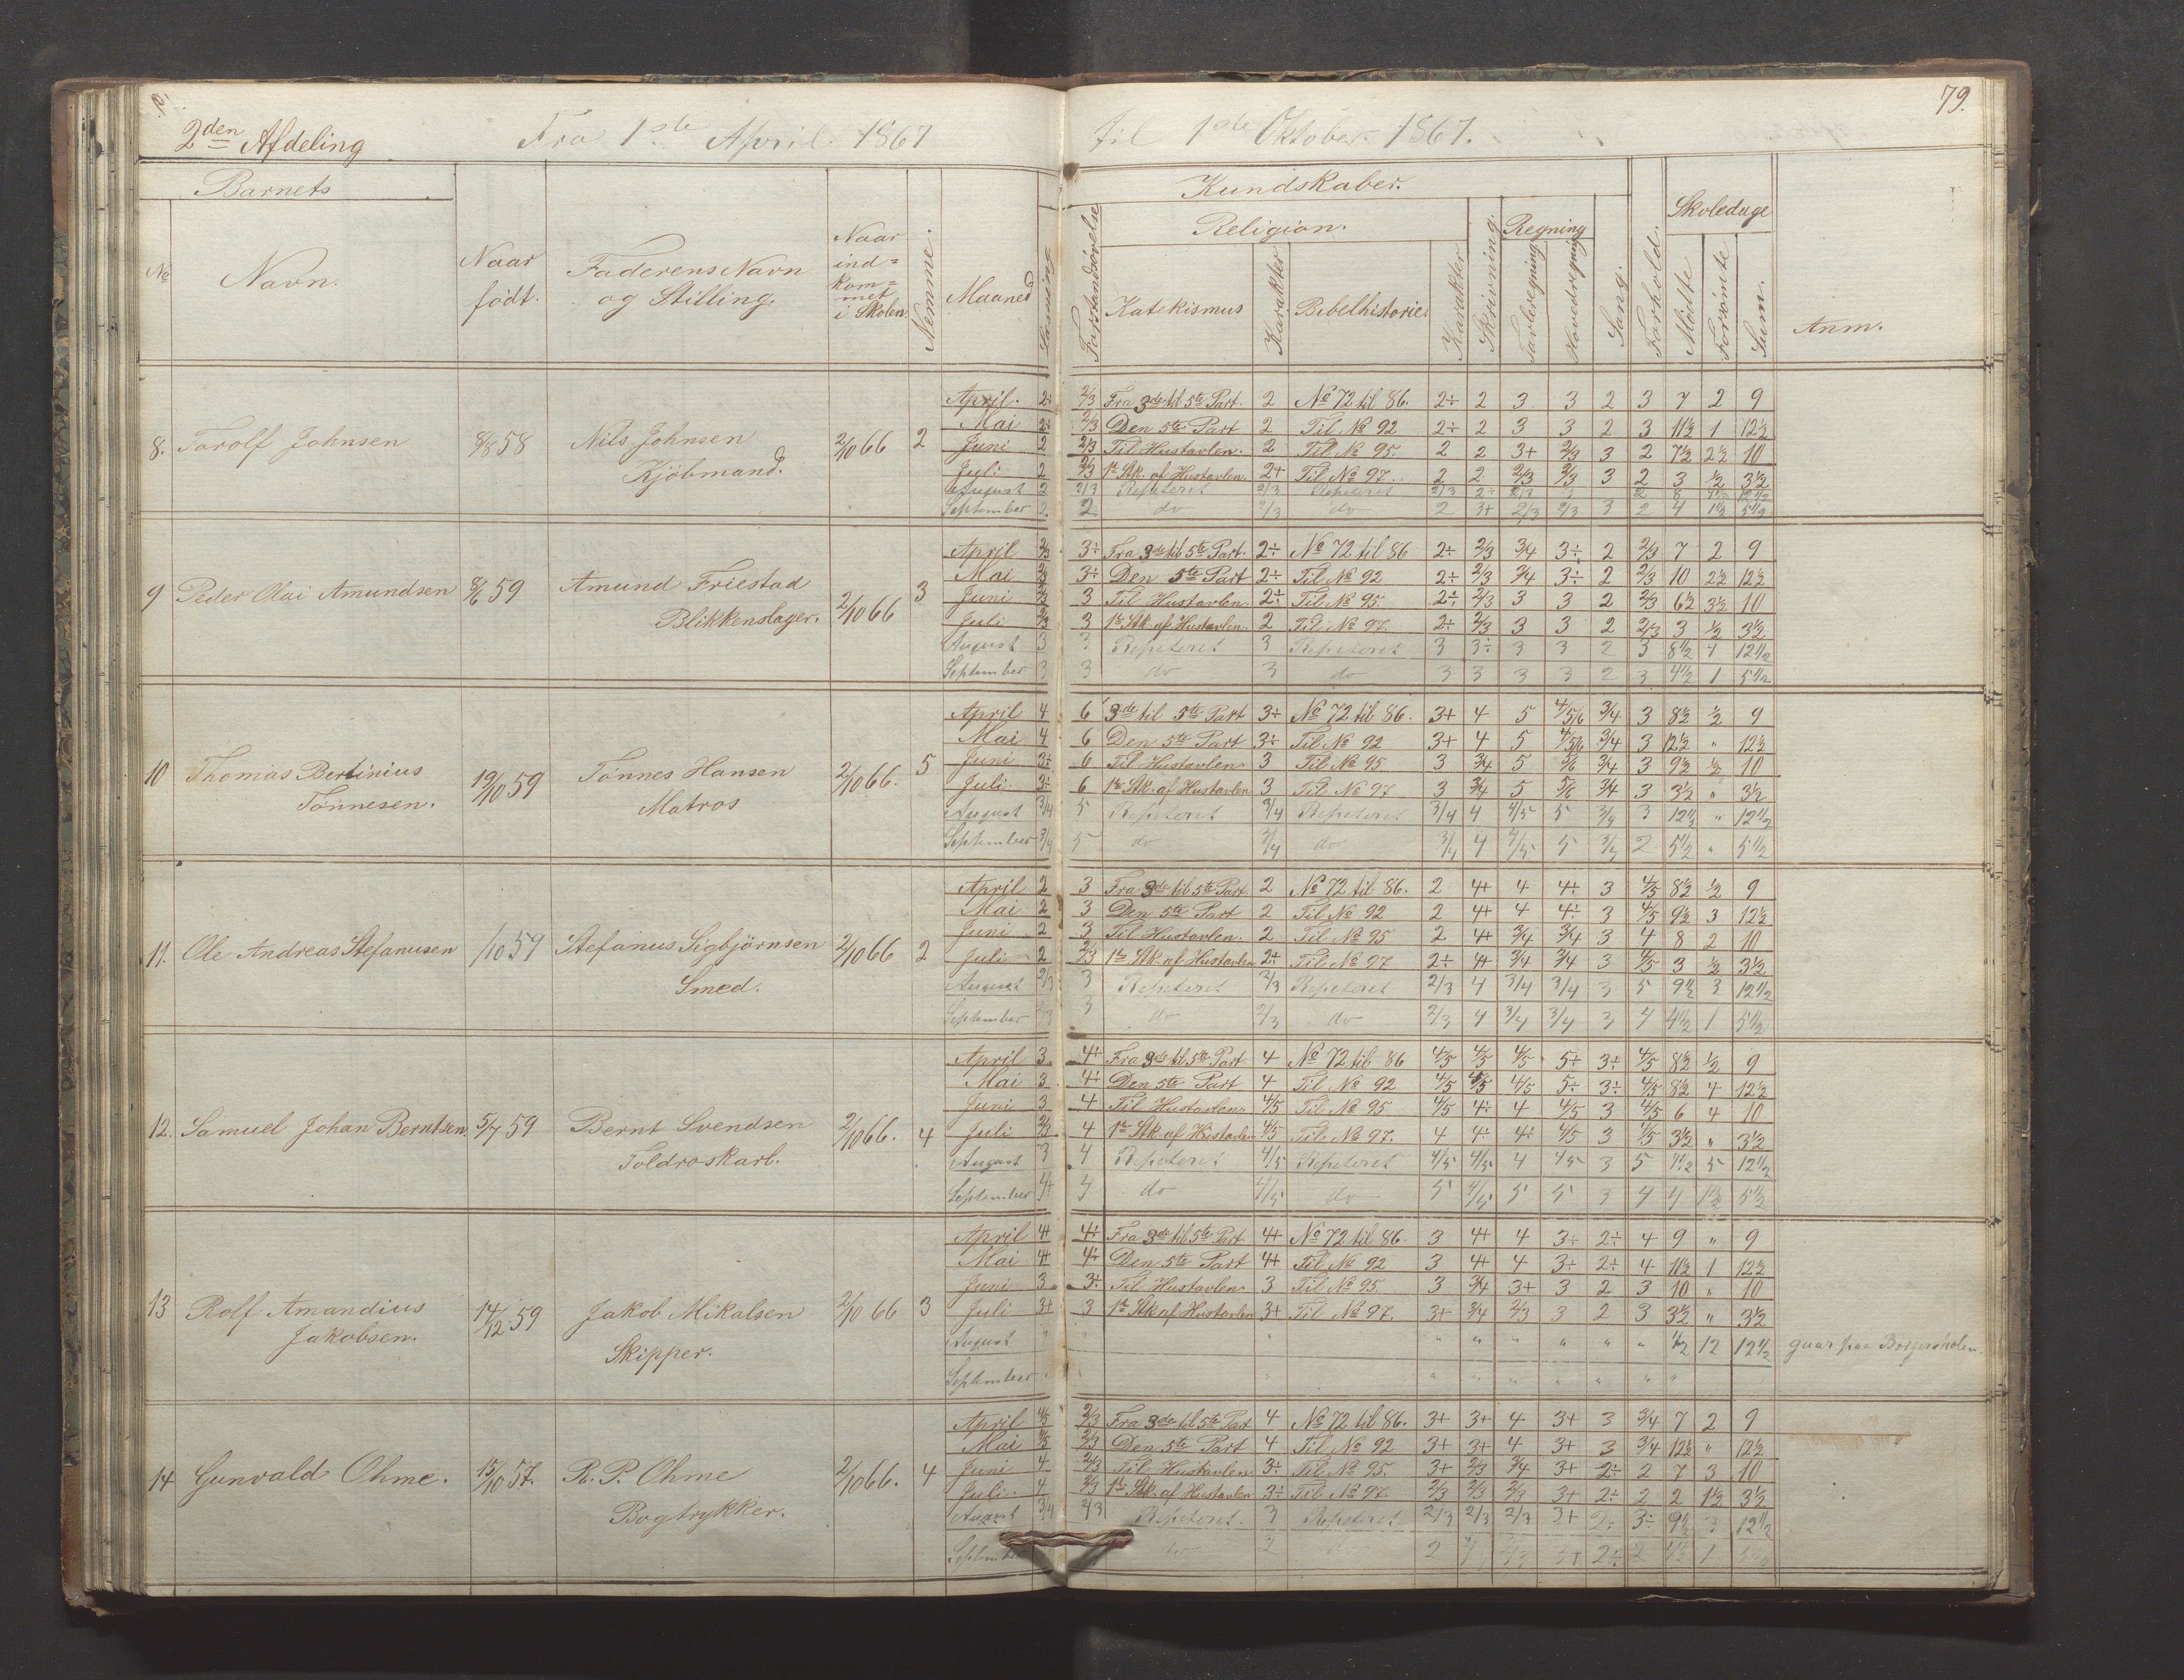 79.
2den Afdeling Fra 1ste April 1867 til 1ste Oktober 1867.
Barnets Kundskaber. Skoledage
Religion. Regning
No Navn. Naar födt. Faderens Navn og Stilling. Naar indkommet i Skolen. Nemme. Maaned Læsning Forstandsövelse Katekismus Karakter Bibelhistorie. Karakter Skrivning. Tavleregning Hovedregning Sang. Forhold. Mödte Forsömte Sum. Anm.
April. 2÷ 2/3 Fra 3de til 5te Part. 2 No 72 til 86. 2÷ 2 3 3 2 3 7 2 9
Mai 2÷ 2/3 Den 5te Part 2 Til No 92 2÷ 2 3 3 2 3 11½ 1 12½
8. Torolf Johnsen 8/8 58 Nils Johnsen 2/10 66 2 Juni 2 2/3 Til Hustavlen. 2 Til No 95. 2 2 3+ 2/3 3 2 7½ 2½ 10
Kjöbmand. Juli 2 2/3 1te Stk. af Hustavlen. 2+ Til No 97. 2 2 2/3 2/3 3 2 3 ½ 3½
August 2 2/3 Repeteret 2/3 Repeteret 2/3 2÷ 2/3 2 8 12½
September 2 2 do 2/3 do 2 3+ 2/3 2/3 3 2 4 1½ 5½
April 2/3 3÷ Fra 3de til 5te Part. 2÷ No 72 til 86 2÷ 2/3 3/4 3÷ 2 2/3 7 2 9
Mai 2/3 3÷ Den 5te Part 2÷ Til No 92 2÷ 2/3 3/4 3÷ 2 2/3 10 2½ 12½
9 Peder Olai Amundsen 8/6 59 Amund Friestad 2/10 66 3 Juni 2/3 3 Til Hustavlen. 2÷ Til No 95. 2÷ 2/3 3 3 2 2/3 6½ 3½ 10
Blikkenslager. Juli 2/3 3 1te Stk. af Hustavlen. 2 Til No 97. 2÷ 2/3 3 3 2 2/3 3 ½ 3½
August 3 3 Repeteret 3 Repeteret 3 3÷ 3 3 2 3 8½ 4 12½
September 3 3 do 3 do 3 3 3 3 2 3 4½ 1 5½
April 4 6 3de til 5te Part 3÷ No 72 til 86. 3+ 4 5 3/4 3 8½ ½ 9
Mai 4 6 Den 5te Part 3÷ Til No 92 3+ 4 5 3/4 3 12½ " 12½
10 Thomas Bertinius 19/10 59 Tönnes Hansen 2/10 66. 5 Juni 3÷ 6 Til Hustavlen 3 Til No 95 3 3/4 5 5/6 3/4 3 9½ ½ 10
Tönnesen. Matros Juli. 3÷ 6 1te Stk. af Hustavlen 3 Til No 97 3 3/4 5 5/6 3/4 3 3½ " 3½
August 3/4 5 Repeteret 3/4 Repeteret 3/4 4 4/5 5 3/4 3 12½ " 12½
September 3/4 5 do 3/4 do 3/4 4 4/5 5 3/4 2 5½ " 5½
April 2 3 Fra 3de til 5te Part. 2 No 72 til 86. 2 4+ 4 4÷ 3 4/5 8½ ½ 9
Mai 2 3 Den 5te Part 2 Til No 92 2 4+ 4 4÷ 3 4/5 9½ 3 12½
11. Ole Andreas Stefanusen /10 59 Stefanus Sigbjörnsen 2/10 66 2 Juni 2 3 Til Hustavlen. 2 Til No 95 2 4+ 3/4 3/4 3 4 8 2 10
Smed. Juli 2 2/3 1te Stk. af Hustavlen 2÷ Til No 97 2÷ 4+ 3/4 3/4 3 4/5 3 ½ 3½
August 2/3 3 Repeteret 2/3 Repeteret 2/3 4 3/4 3/4 3 5 9½ 3 12½
September 3 do 2/3 do 2/3 4 3/4 3/4 3 4 4½ 1 5½
April 3 4+ Fra 3de til 5te Part. 4 No 72 til 86 4/5 4/5 4/5 5÷ 3÷ 4/5 8½ ½ 9
Mai 3 4÷ Den 5te Part 4 Til No 92 4/5 4/5 4/5 5÷ 3÷ 4/5 8½ 4 12½
12. Samuel Johan Berntsen. 5/7 59 Bernt Svendsen 2/10 66. 4 Juni 3 4 Til Hustavlen 4/5 Til No 95 4/5 4÷ 4 4/5 3 4/5 6 4 10
Toldroskarl. Juli 2/3 4 1te Stk. af Hustavlen 4/5 Til No 97. 4 4÷ 4÷ 4/5 3 4/5 3½ " 3½
August 3 4 Repeteret 4/5 Repeteret 4/5 4/5 4 4/5 3 5 5 12½
September 4 do 4/5 do 5 4/5 5 5 3 4 4 1½ 5½
April 4+ 4+ Fra 3de til 5te Part 4+ No 72 til 86. 3 4+ 4 3÷ 2÷ 4 9 " 9
Mai 4+ 4÷ Den 5te Part 4+ Til No 92 3 4+ 4 3÷ 2÷ 4 11½ 1 12½
13 Rolf Amandius 14/12 59 Jakob Mikalsen 2/10 66 3 Juni 3 3÷ Til Hustavlen 3 Til No 95. 3 3/4 3+ 3 2 3 10 " 10
Jakobsen. Skipper. Juli 3+ 3 1te Stk af Hustavlen 3+ Til No 97. 3+ 3/4 2/3 3 2 3 3½ " 3½
August " " " " " " " " " ½ 12 12½ gaar paa Borgerskolen.
September " " " " " " " "
April 4/5 2/3 Fra 3de til 5te Part 4 No 72 til 86. 3+ 3+ 4 3+ 3 3/4 7 2 9
Mai 4/5 2/3 Den 5te Part 4 Til No 92 3+ 3+ 4 3+ 3 3/4 12½ " 12½
14 Gunvald Ohme. 15/10 57. R. P. Ohme 2/10 66. 4 Juni 4 2/3 Til Hustavlen. 3÷ Til No 95. 3+ 2/3 3/4 3+ 2÷ 2 7 3 10
Bogtrykker. Juli. 4 2/3 1te Stk. af Hustavlen 3÷ Til No 97. 2/3 2/3 2/3 3+ 2÷ 2 2 1½ 3½
August 3/4 2/3 Repeteret. 3 Repeteret 2/3 2/3 2/3 3+ 2÷ 3÷ 9½ 3 12½
September do 2 do 2 3+ 2÷ 2 4½ 1 5½